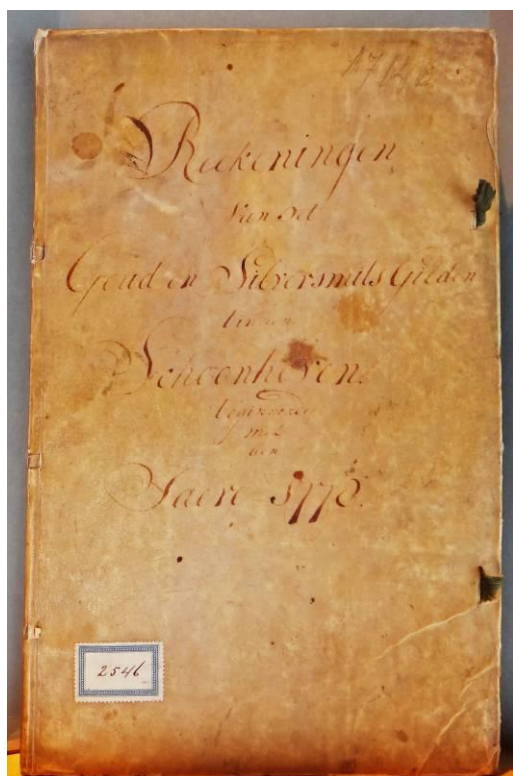 Reekeningen
Van het
Goud en Silversmits Gilden
binnen
Schoonhoven.
begonnen
met
den
Jaere 1770.
2546